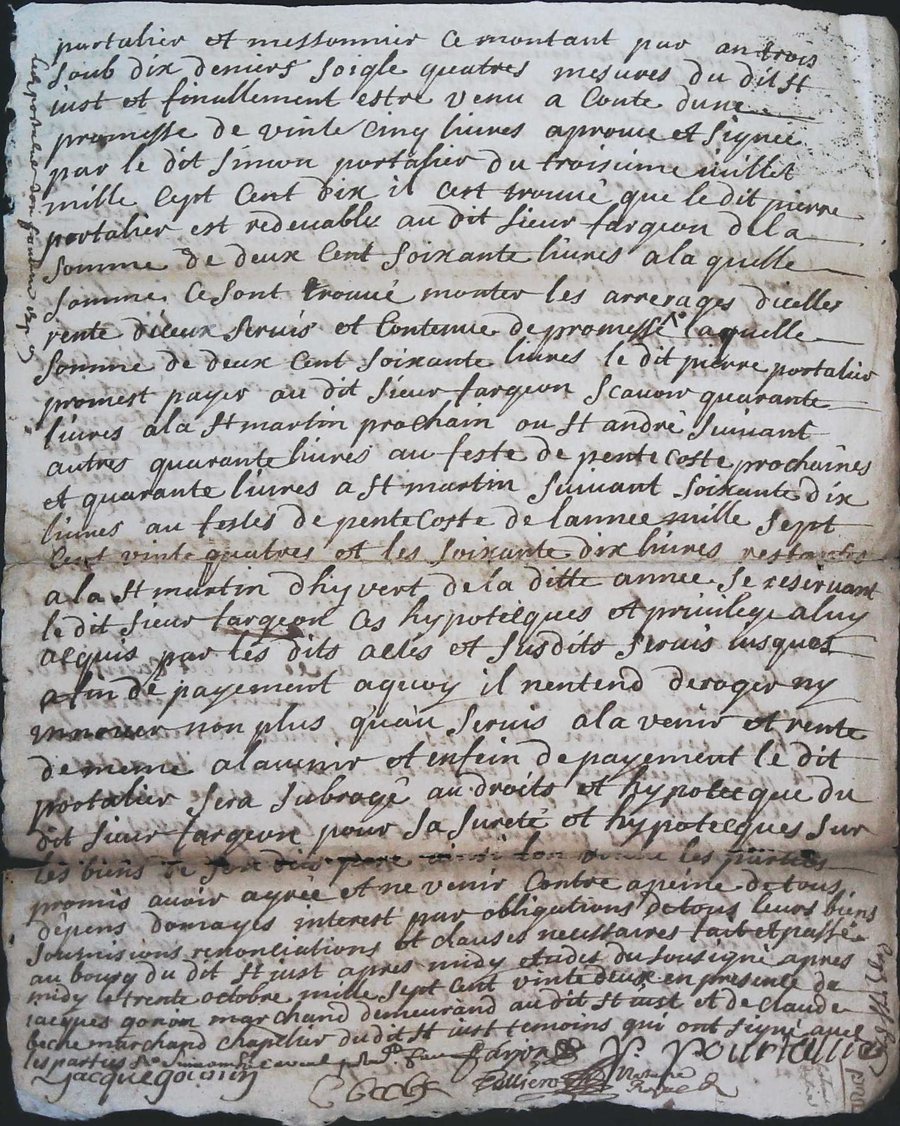 portalier et messonnier ce montant par an trois
soub dix deniers soigle quatres mesures du dit st
iust et finallement estre venu a conte dune
promesse de vinte cinq livres aprouve et signee
par le dit simon portalier du troisieme millet
mille sept cent dix il cest trouvé que le dit pierre
portalier est redeuable au dit sieur fargeon de la
somme de deux cent soixante livres a la quelle
somme ce sont trouvé monter les arrerages dicelles
rente diceux seruis et contenue de promesse laquelle
somme de deux cent soixante livres le dit pierre portalier
promest payer au dit sieur fargeon scavoir quarante
livres a la st martin prochain ou st andré suivant
autres quarante livres au feste de pentecoste prochaines
et quarante livres a st martin suivant soixante dix
livres au festes de pentecoste de lannee mille sept
cent vinte quatres et les soixante dix livres restantes
a la st martin dhyvert de la ditte annee se reservant
le dit sieur fargeon ces hypotecques et privilege a luy
acquis par les dits actes et susdits seruis iusques
a fin de payement a quoy il nentend deroger ny
innover non plus qu'au seruis a la venir et rente
de meme a lavenir et enfein de payement le dit
portalier sera subrogé au droits et hypotecque du
dit sieur fargeon pour sa sureté et hypotecques sur
les biens de les parties
promis avoir agree et ne venir contre a peine de tous
dépens domages interest par obligations de tous leurs biens
soumissions renonciations et clauses necessaires fait et passé
au bourg du dit st iust apres midy du sousigné apres
midy le trente octobre mille sept cent vinte deux en presence de
iacques gonin marchand demeurand au dit st iust et de claude
beche marchand chapelier du dit st iust temoins qui ont signé avec
les parties
P. Pourtallier
Jacque gounin